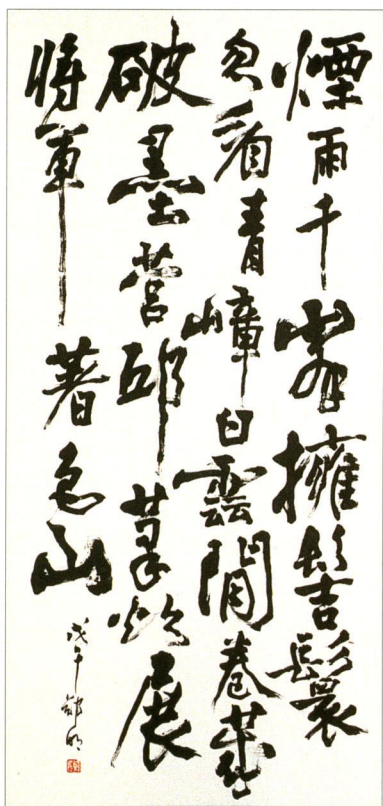 煙雨千峯擁髻鬟
忽看青嶂白雲間卷藏
破墨營邱筆卻展
將軍著色山
戊午